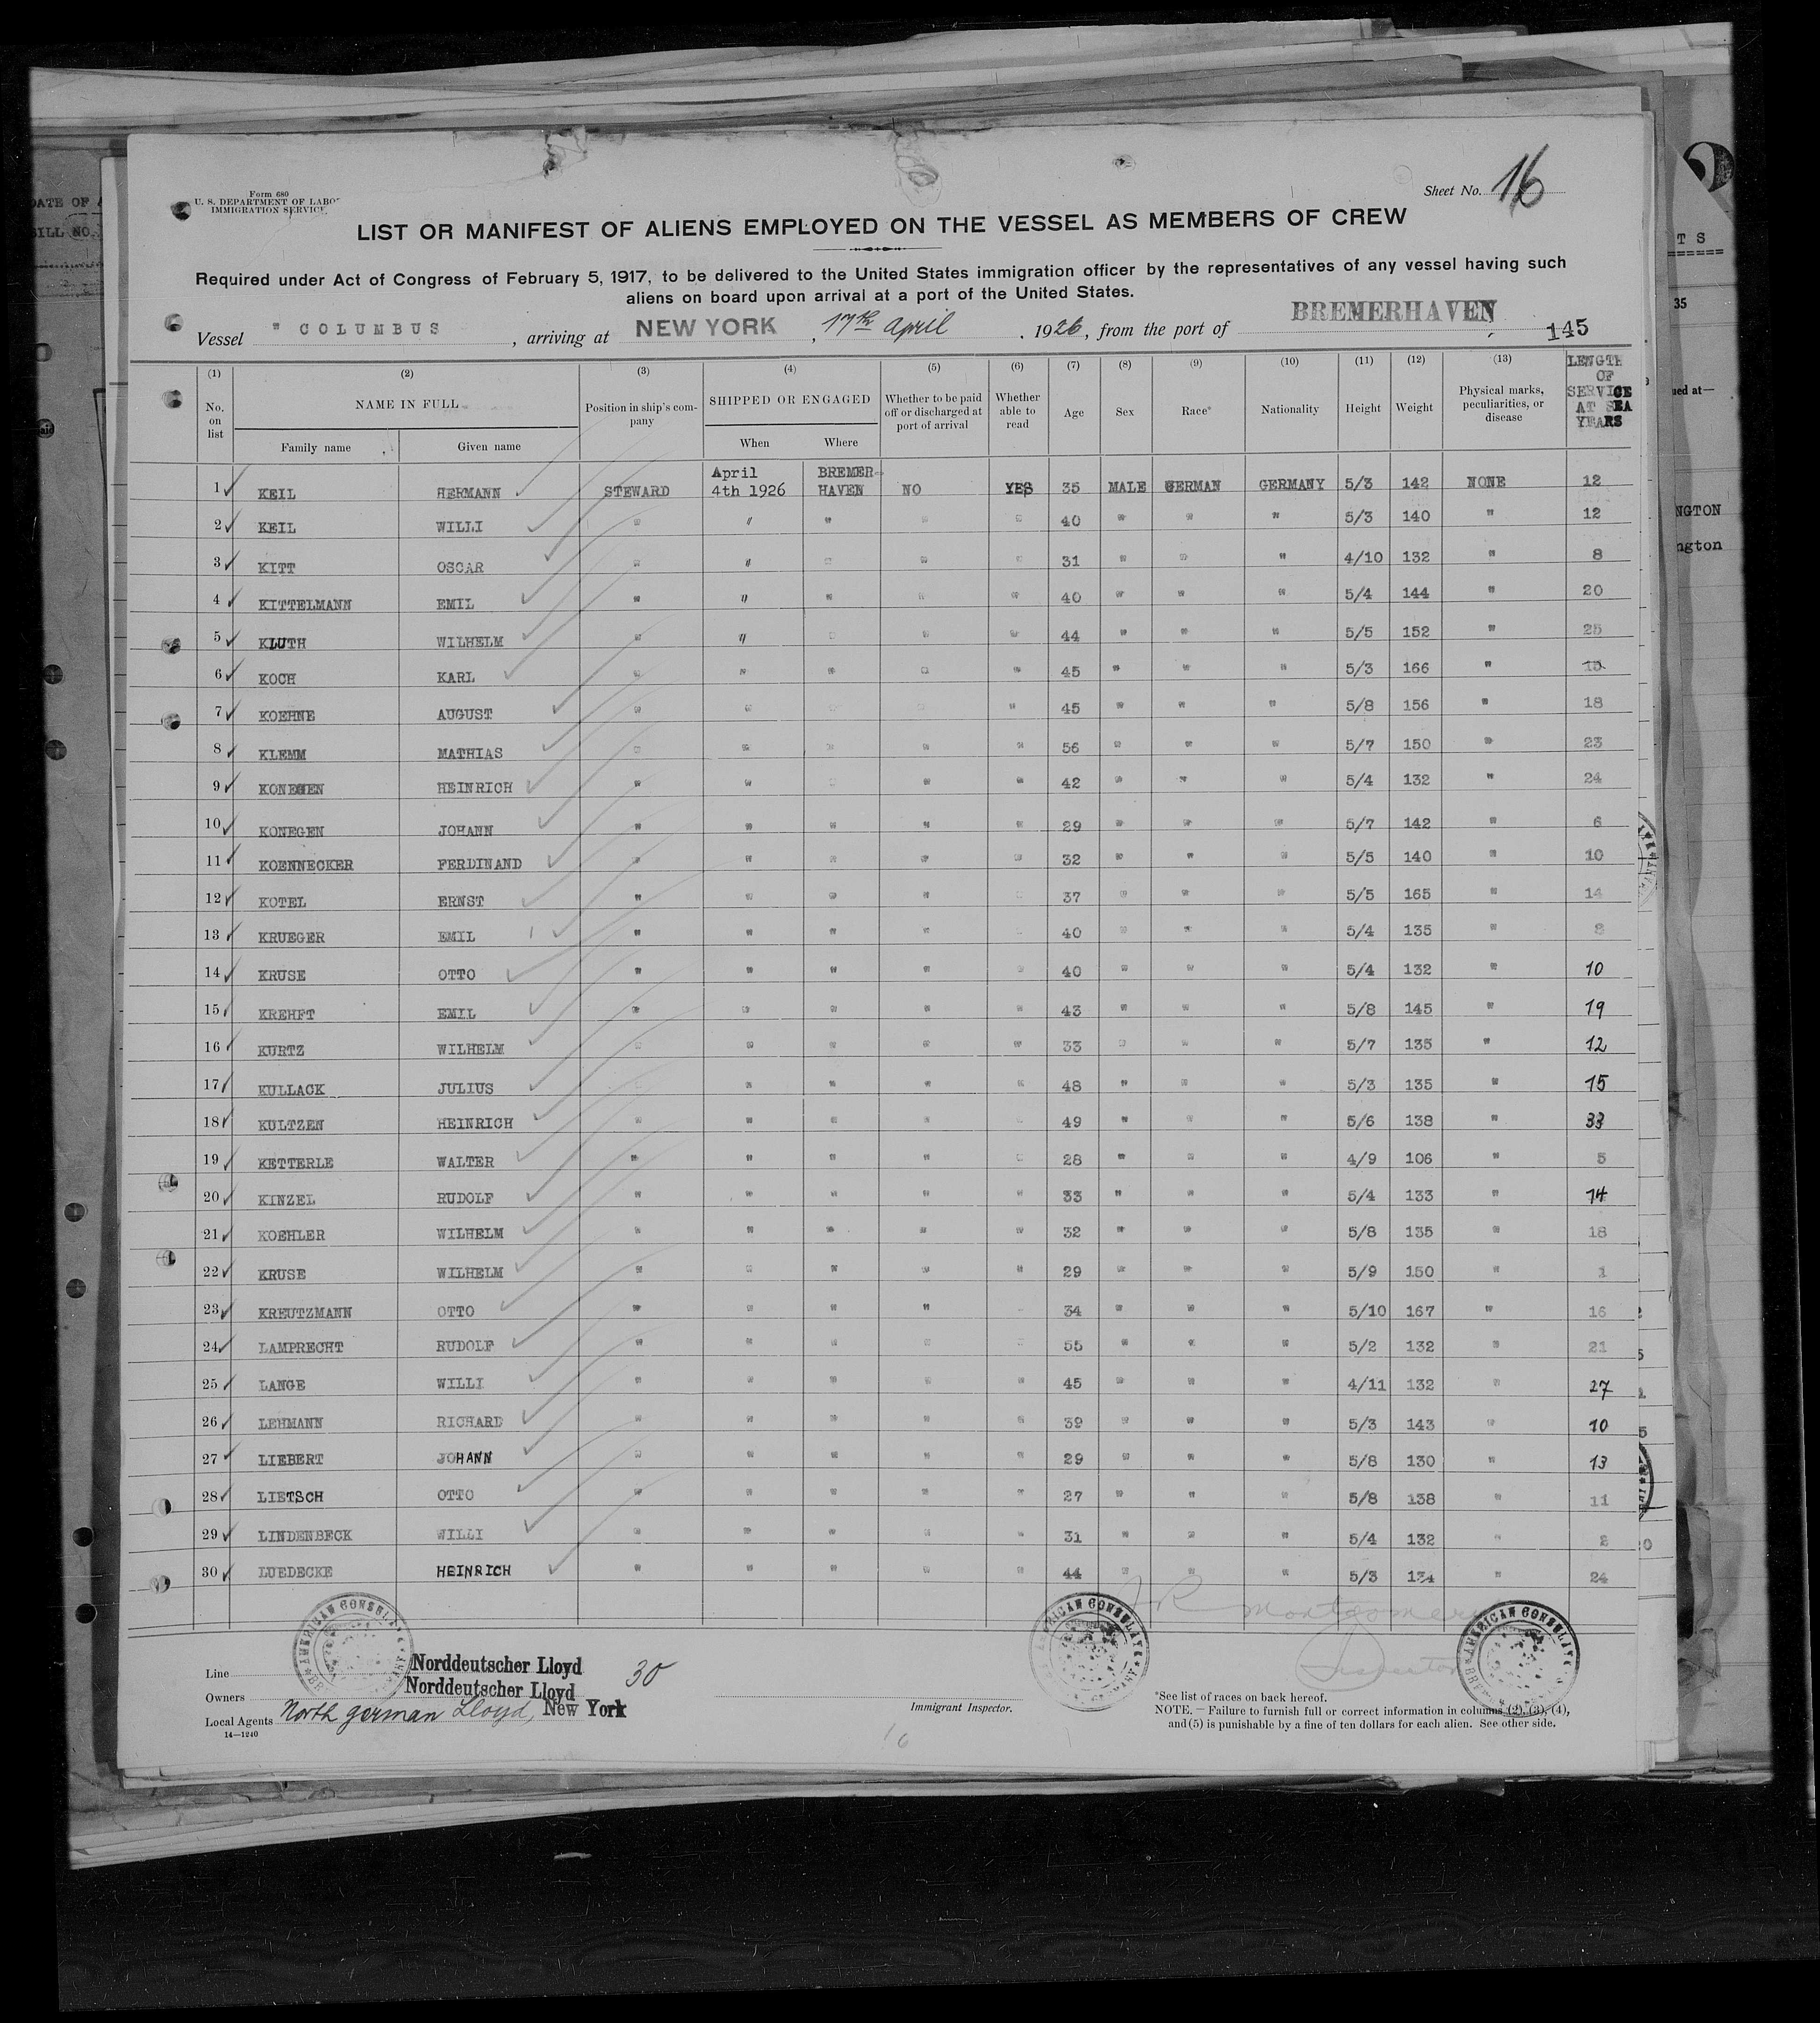 Form 680
U. S. DEPARTMENT OF LABOR
IMMIGRATION SERVICE
Sheet No. 16
LIST OR MANIFEST OF ALIENS EMPLOYED ON THE VESSEL AS MEMBERS OF CREW
Required under Act of Congress of February 5, 1917, to be delivered to the United States immigration officer by the representatives of any vessel having such
aliens on board upon arrival at a port of the United States.
Vessel " COLUMBUS , arriving at NEW YORK , 17th april , 1926, from the port of BREMERHAVEN 145
(1) (2) (3) (4) (5) (6) (7) (8) (9) (10) (11) (12) (13)
No. on list NAME IN FULL Family name Given name Position in ship's company SHIPPED OR ENGAGED When Where Whether to be paid off or discharged at port of arrival Whether able to read Age Sex Race* Nationality Height Weight Physical marks, peculiarities, or disease LENGTH OF SERVICE AT SEA YEARS
1 KEIL HERMANN STEWARD April 4th 1926 BREMERHAVEN NO YES 35 MALE GERMAN GERMANY 5/3 142 NONE 12
2 KEIL WILLI " " " " " 40 " " " 5/3 140 " 12
3 KITT OSCAR " " " " " 31 " " " 4/10 132 " 8
4 KITTELMANN EMIL " " " " " 40 " " " 5/4 144 " 20
5 KLUTH WILHELM " " " " " 44 " " " 5/5 152 " 25
6 KOCH KARL " " " " " 45 " " " 5/3 166 " 15
7 KOEHNE AUGUST " " " " " 45 " " " 5/8 156 " 18
8 KLEMM MATHIAS " " " " " 56 " " " 5/7 150 " 23
9 KONEGEN HEINRICH " " " " " 42 " " " 5/4 132 " 24
10 KONEGEN JOHANN " " " " " 29 " " " 5/7 142 " 6
11 KOENNECKER FERDINAND " " " " " 32 " " " 5/5 140 " 10
12 KOTEL ERNST " " " " " 37 " " " 5/5 165 " 14
13 KRUEGER EMIL " " " " " 40 " " " 5/4 135 " 8
14 KRUSE OTTO " " " " " 40 " " " 5/4 132 " 10
15 KREHFT EMIL " " " " " 43 " " " 5/8 145 " 19
16 KURTZ WILHELM " " " " " 33 " " " 5/7 135 " 12
17 KULLACK JULIUS " " " " 48 " " " 5/3 135 " 15
18 KULTZEN HEINRICH " " " " " 49 " " " 5/6 138 " 33
19 KETTERLE WALTER " " " " " 28 " " " 4/9 106 " 5
20 KINZEL RUDOLF " " " " " 33 " " " 5/4 133 " 14
21 KOEHLER WILHELM " " " " " 32 " " " 5/8 135 " 18
22 KRUSE WILHELM " " " " " 29 " " " 5/9 150 " 1
23 KREUTZMANN OTTO " " " " " 34 " " " 5/10 167 " 16
24 LAMPRECHT RUDOLF " " " " " 55 " " " 5/2 132 " 21
25 LANGE WILLI " " " " " 45 " " " 4/11 132 " 27
26 LEHMANN RICHARD " " " " " 39 " " " 5/3 143 " 10
27 LIEBERT JOHANN " " " " " 29 " " " 5/8 130 " 13
28 LIETSCH OTTO " " " " " 27 " " " 5/8 138 " 11
29 LINDENBECK WILLI " " " " " 31 " " " 5/4 132 " 2
30 LUEDECKE HEINRICH " " " " " 44 " " " 5/3 134 " 24
J R Montgomery
Inspector
AMERICAN CONSULATE
AMERICAN CONSULATE
AMERICAN CONSULATE
Line Norddeutscher Lloyd 30
Owners Norddeutscher Lloyd
Local Agents North german Lloyd, New York
14—1240
Immigrant Inspector.
*See list of races on back hereof.
NOTE. — Failure to furnish full or correct information in columns (2), (3), (4),
and (5) is punishable by a fine of ten dollars for each alien. See other side.
16